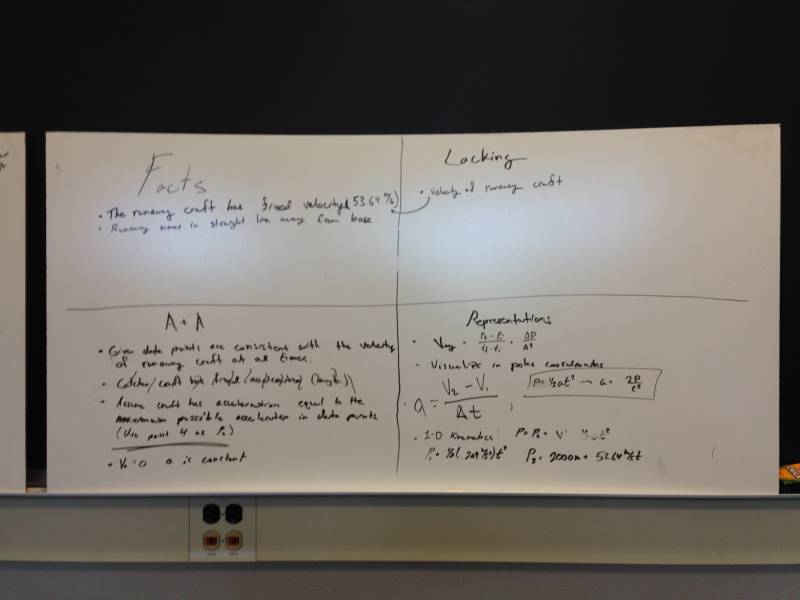 Facts
• The runaway craft has fixed velocity (53.64 m/s)
• Runaway moves in straight line away from base
Lacking
• velocity of runaway craft
A + A
• Given data points are consistent with the velocity
of runaway craft at all times.
• Catcher craft
• Assume craft has acceleration equal to the
maximum possible acceleration in data points
(Use point 4 as P₀)
• V₀ = 0 a is constant
Representations
• Vavg = = ΔP
Δt
• Visualize in polar coordinates
• a = V₂ - V₁
Δt
P = ½at² → a = 2P
t²
• 1-D Kinematics:
P₂ = 2000m + 53.64 m/s t